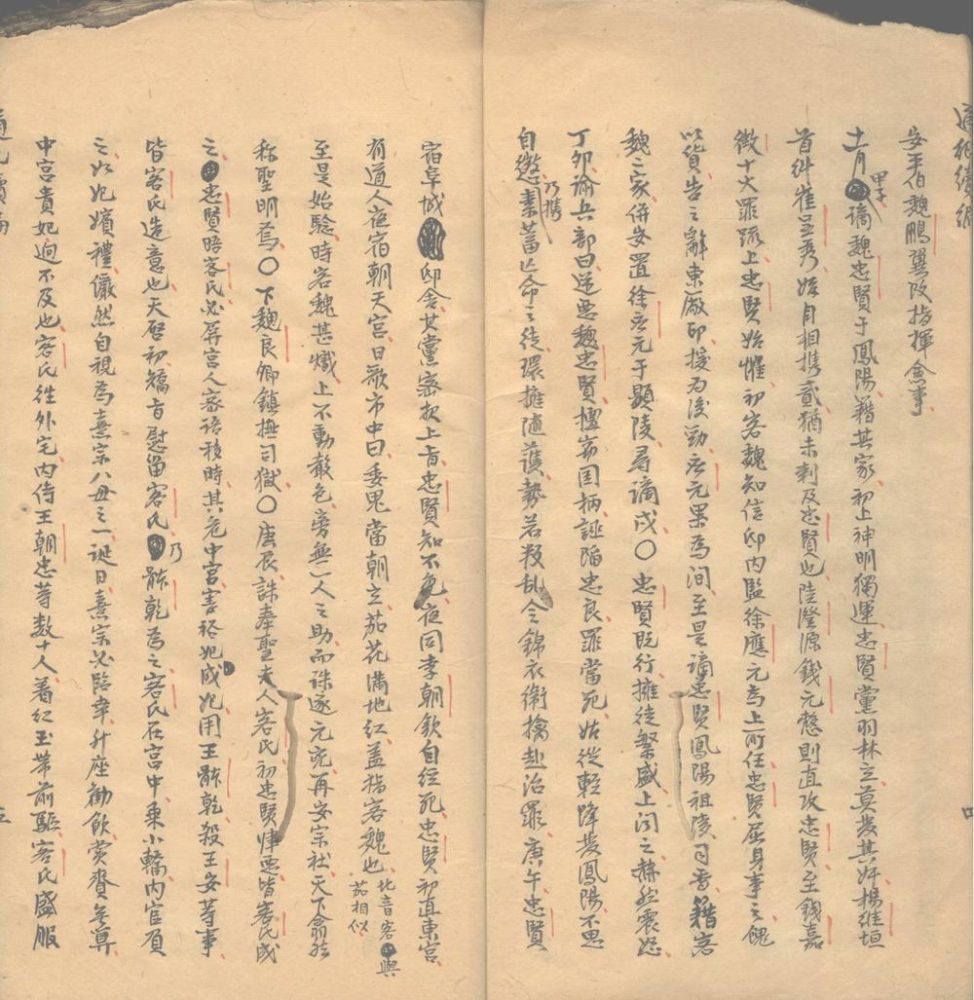 安平伯魏鵬翼改指揮僉事
十一月甲子謫魏忠賢于鳳陽籍其家初上神明獨運忠賢黨羽林立莫發其奸楊維垣
首糾崔呈秀始自相攜貳猶未剌及忠賢也陸澄源錢元愨則直攻忠賢至錢嘉
徵十大罪疏上忠賢始懼初客魏知信邸內監徐應元為上所任忠賢屈身事之餽
以貨告之辭東廠印援為後勁應元果為間至是謫忠賢鳳陽祖陵司香籍客
魏二家併安置徐應元于顯陵尋謫戍〇忠賢既行擁徒繁盛上聞之赫然震怒
丁卯諭兵部曰逆惡魏忠賢擅竊國柄誣陷忠良罪當死姑從輕降發鳳陽不思
自懲乃攜素蓄亡命之徒環擁隨護勢若叛亂令錦衣衛擒赴治罪庚午忠賢
宿阜城邸舍其黨密報上旨忠賢知不免夜同李朝欽自經死忠賢初直東宮
有道人夜宿朝天宮日歌市中曰委鬼當朝立茄花滿地紅蓋指客魏也北音客與茄相似
至是始驗時客魏甚熾上不動聲色旁無一人之助而誅逐元兇再安宗社天下翕然
稱聖明焉〇下魏良卿鎮撫司獄〇庚辰誅奉聖夫人客氏初忠賢肆惡皆客氏成
之忠賢晤客氏必屏宮人密語移時其危中宮害裕妃成妃用王體乾殺王安等事
皆客氏造意也天啓初矯旨慰留客氏乃體乾為之客氏在宮中乘小轎內官負
之如妃嬪禮儼然自視為熹宗八母之一誕日熹宗必臨幸升座勸飲賞賚無算
中宮貴妃迥不及也客氏往外宅內侍王朝忠等数十人着紅玉帶前驅客氏盛服